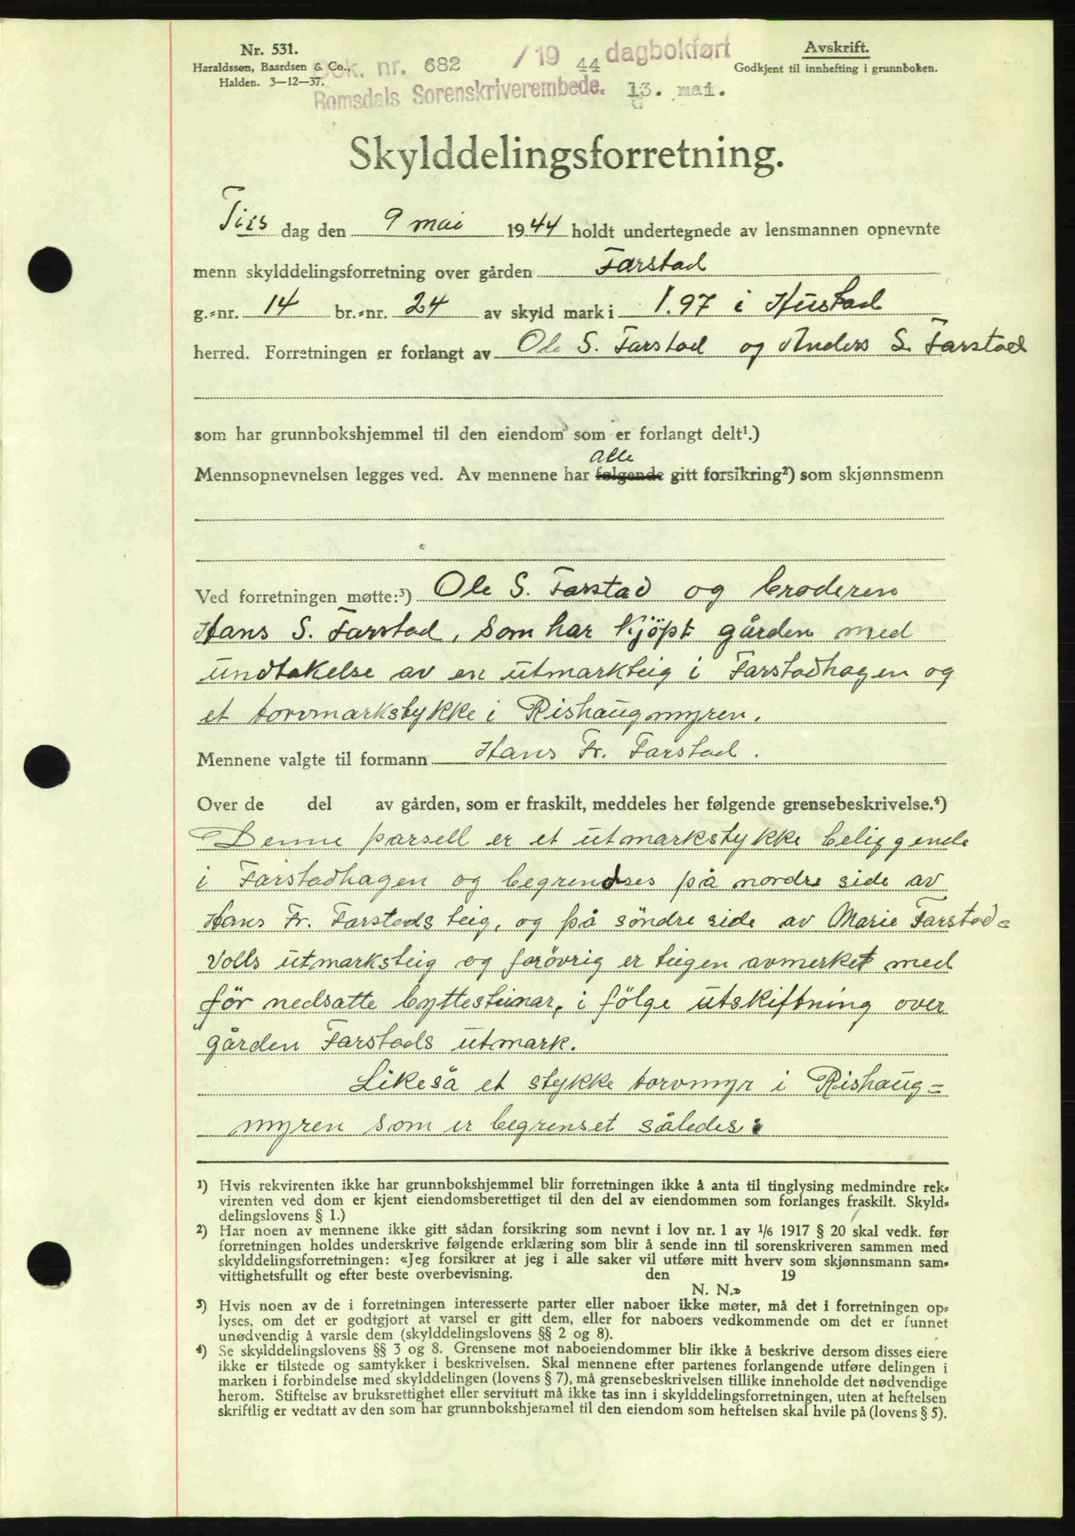 Nr. 531.
Haraldssen, Baardsen & Co.,
Halden. 3—12—37.
Dok. nr. 682 /19 44 dagbokført
Romsdals Sorenskriverembede. 13. mai.
Avskrift.
Godkjent til innhefting i grunnboken.
Skylddelingsforretning.
Tirs dag den 9 mai 1944 holdt undertegnede av lensmannen opnevnte
menn skylddelingsforretning over gården Farstad
g.-nr. 14 br.-nr. 24 av skyld mark i 1.97 i Hustad
herred. Forretningen er forlangt av Ole S. Farstad og Anders S. Farstad
som har grunnbokshjemmel til den eiendom som er forlangt delt¹.)
alle
Mennsopnevnelsen legges ved. Av mennene har følgende gitt forsikring²) som skjønnsmenn
Ved forretningen møtte:³) Ole S. Farstad og broderen
Hans S. Farstad, som har kjöpt gården med
undtakelse av en utmarkteig i Farstadhagen og
et torvmarkstykke i Rishaugmyren.
Mennene valgte til formann Hans Fr. Farstad.
Over de del av gården, som er fraskilt, meddeles her følgende grensebeskrivelse.⁴)
Denne parsell er et utmarkstykke beliggende
i Farstadhagen og begrendses på nordre side av
Hans Fr. Farstads teig, og på söndre side av Marie Farstad=
volls utmarksteig og forövrig er teigen avmerket med
för nedsatte byttesteinar, i fölge utskiftning over
gården Farstads utmark.
Likeså et stykke torvmyr i Rishaug=
myren som er begrenset således:
¹) Hvis rekvirenten ikke har grunnbokshjemmel blir forretningen ikke å anta til tinglysing medmindre rek-
virenten ved dom er kjent eiendomsberettiget til den del av eiendommen som forlanges fraskilt. Skyld-
delingslovens § 1.)
²) Har noen av mennene ikke gitt sådan forsikring som nevnt i lov nr. 1 av 1/6 1917 § 20 skal vedk. før
forretningen holdes underskrive følgende erklæring som blir å sende inn til sorenskriveren sammen med
skylddelingsforretningen: «Jeg forsikrer at jeg i alle saker vil utføre mitt hverv som skjønnsmann sam-
vittighetsfullt og efter beste overbevisning. den 19
N. N.»
³) Hvis noen av de i forretningen interesserte parter eller naboer ikke møter, må det i forretningen op-
lyses, om det er godtgjort at varsel er gitt dem, eller for naboers vedkommende om det er funnet
unødvendig å varsle dem (skylddelingslovens §§ 2 og 8).
⁴) Se skylddelingslovens §§ 3 og 8. Grensene mot naboeiendommer blir ikke å beskrive dersom disses eiere
ikke er tilstede og samtykker i beskrivelsen. Skal mennene efter partenes forlangende utføre delingen i
marken i forbindelse med skylddelingen (lovens § 7), må grensebeskrivelsen tillike inneholde det nødvendige
herom. Stiftelse av bruksrettighet eller servitutt må ikke tas inn i skylddelingsforretningen, uten at heftelsen
skriftlig er vedtatt av den som har grunnbokshjemmel til den eiendom som heftelsen skal hvile på (lovens § 5).